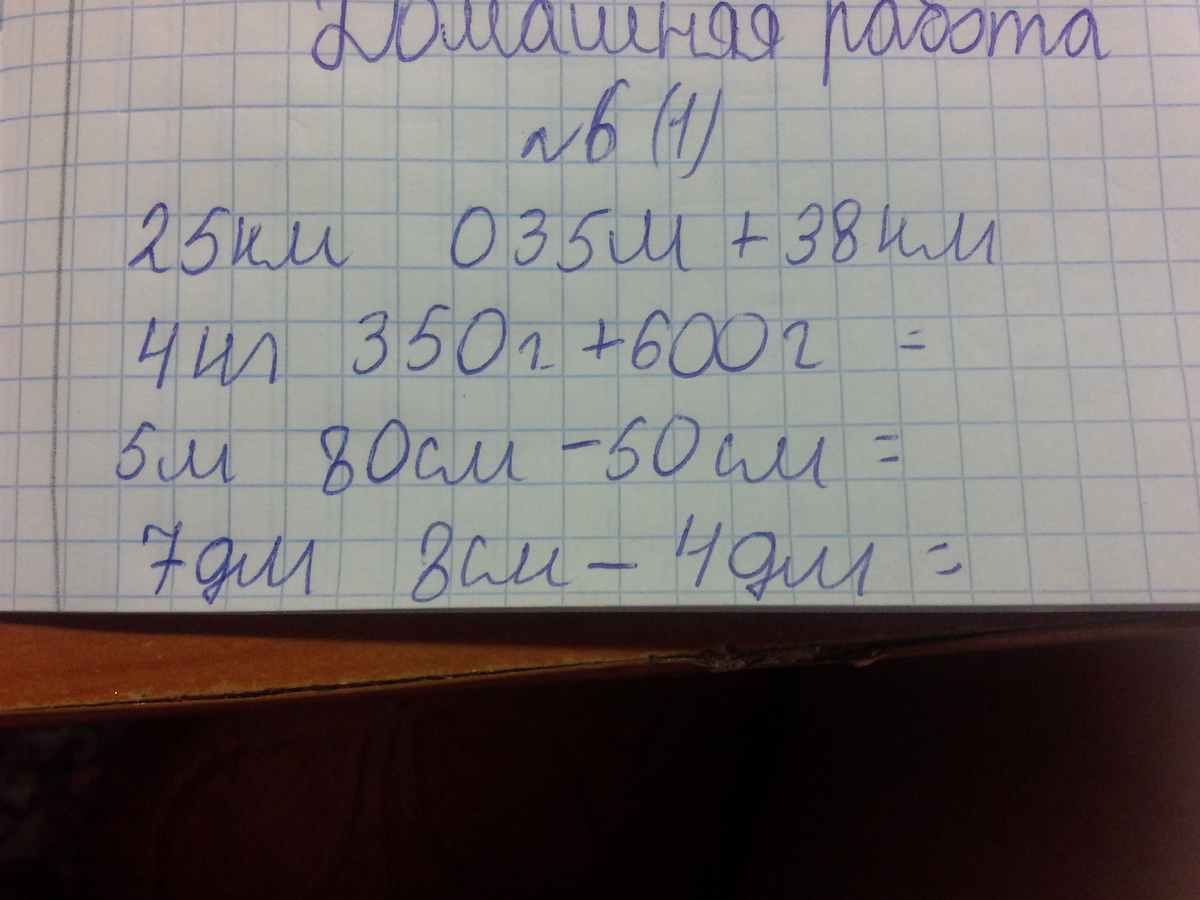 Домашняя работа
№6 (1)
25км 035м + 38км
4кг 350г + 600г =
5м 80см - 50см =
7дм 8см - 4дм =